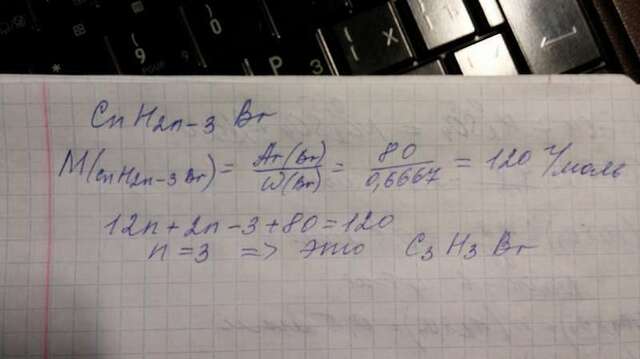 9
0
P
3
X
CnH2n-3 Br
M(CnH2n-3Br) = Ar(Br)/ω(Br) = 80/0,6667 = 120 г/моль
12n+2n-3+80=120
n=3 => это C3H3Br